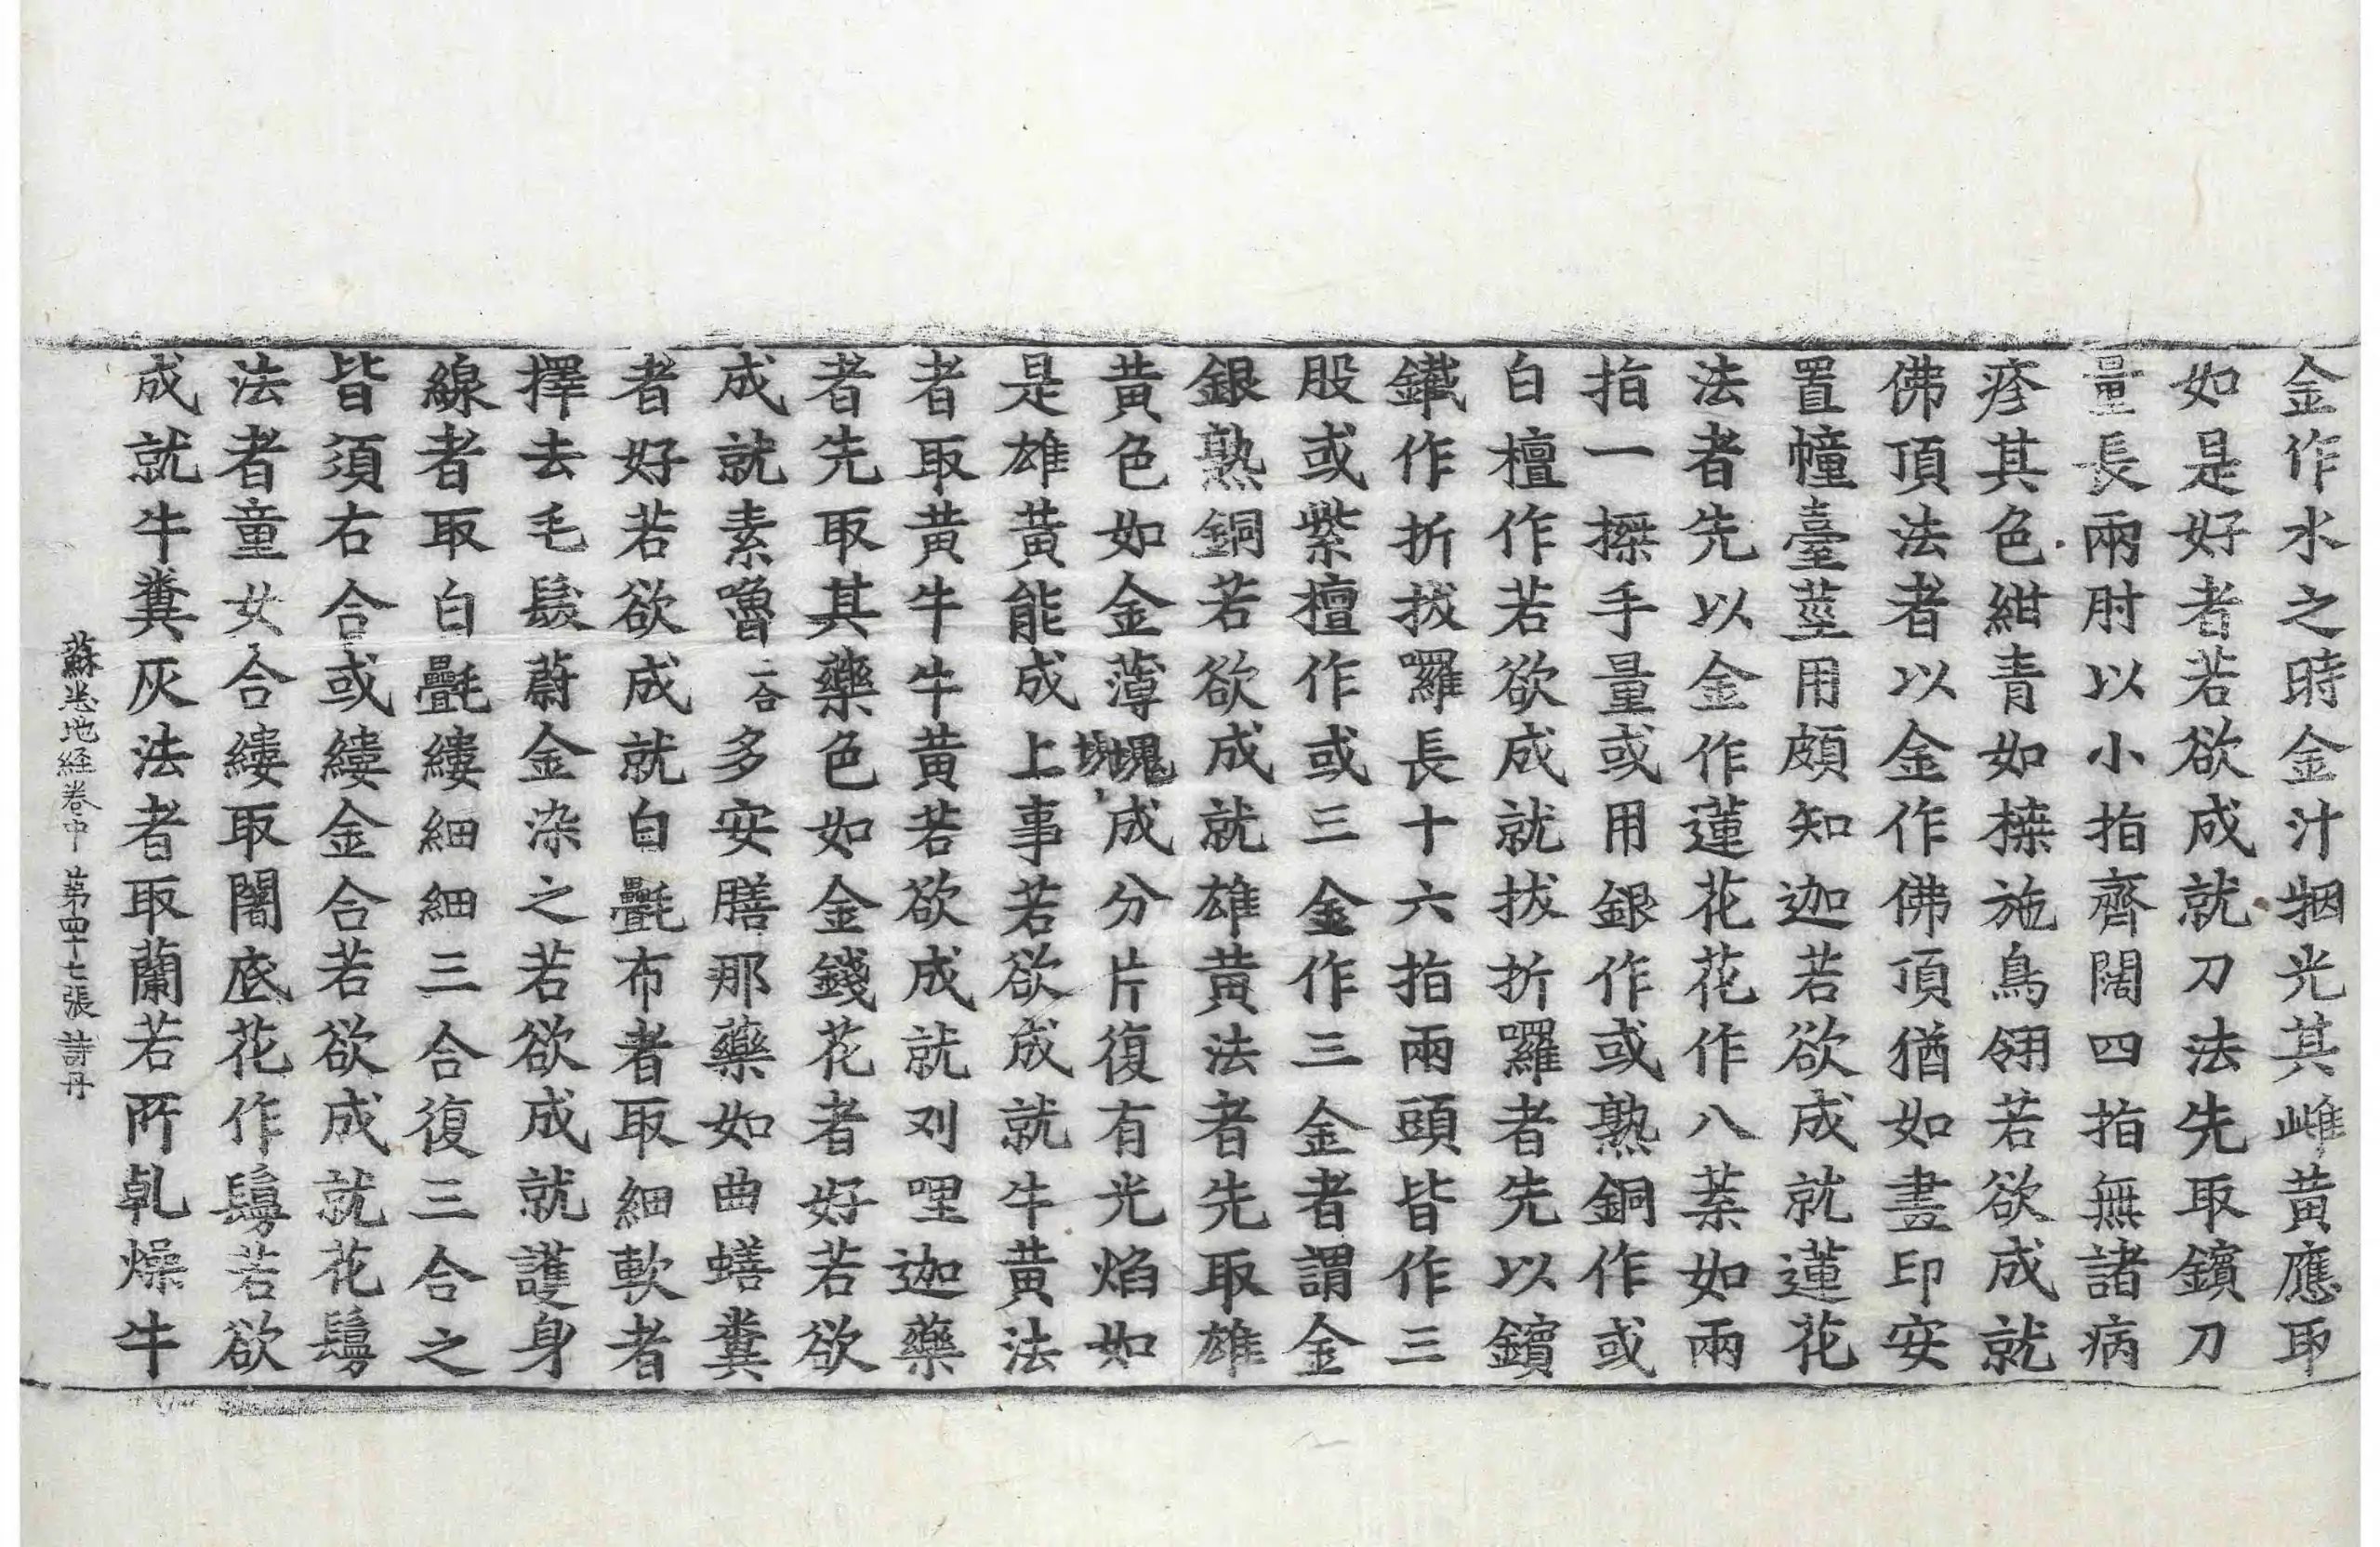 金作水之時金汁烟光其雌黃應耶
如是好者若欲成就刀法先取鑌刀
量長兩肘以小指齊闊四指無諸病
疹其色紺青如㯿施鳥翎若欲成就
佛頂法者以金作佛頂猶如畫印安
置幢臺莖用頗知迦若欲成就蓮花
法者先以金作蓮花花作八葉如兩
指一搩手量或用銀作或熟銅作或
白檀作若欲成就拔折囉者先以鑌
鐵作折拔囉長十六指兩頭皆作三
股或紫檀作或三金作三金者謂金
銀熟銅若欲成就雄黃法者先取雄
黃色如金薄塊塊成分片復有光焰如
是雄黃能成上事若欲成就牛黃法
者取黃牛牛黃若欲成就刘哩迦藥
者先取其藥色如金錢花者好若欲
成就素嚕二合多安膳那藥如曲蟮糞
者好若欲成就白㲲布者取細軟者
擇去毛髮蔚金染之若欲成就護身
線者取白㲲縷細細三合復三合之
皆須右合或縷金合若欲成就花鬘
法者童女合縷取闍底花作鬘若欲
成就牛糞灰法者取蘭若所乹燥牛
蘇悉地経卷中 苐四十七張 詩丹